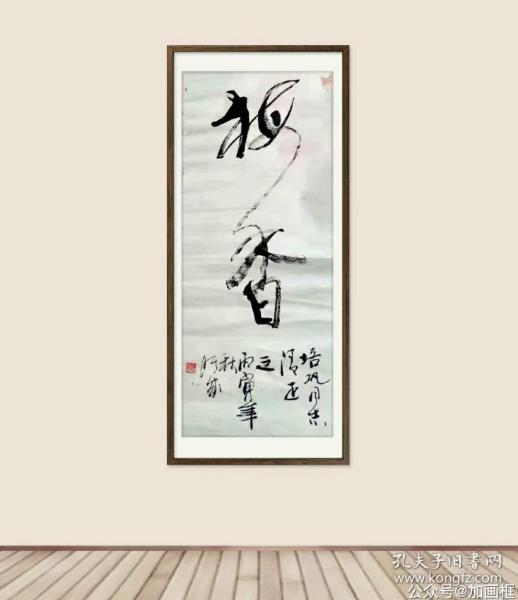 梅香
培巩同志
清正
之
丙寅年
秋
孔夫子旧书网
www.kongfz.com
公众号@加画框